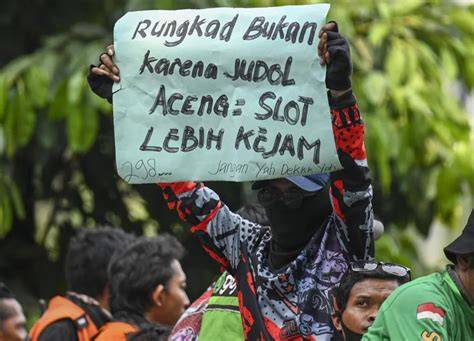 Rungkad Bukan
karena JUDOL
ACENG = SLOT
LEBIH KEJAM
298.. Jangan Yah Dekkk Yah